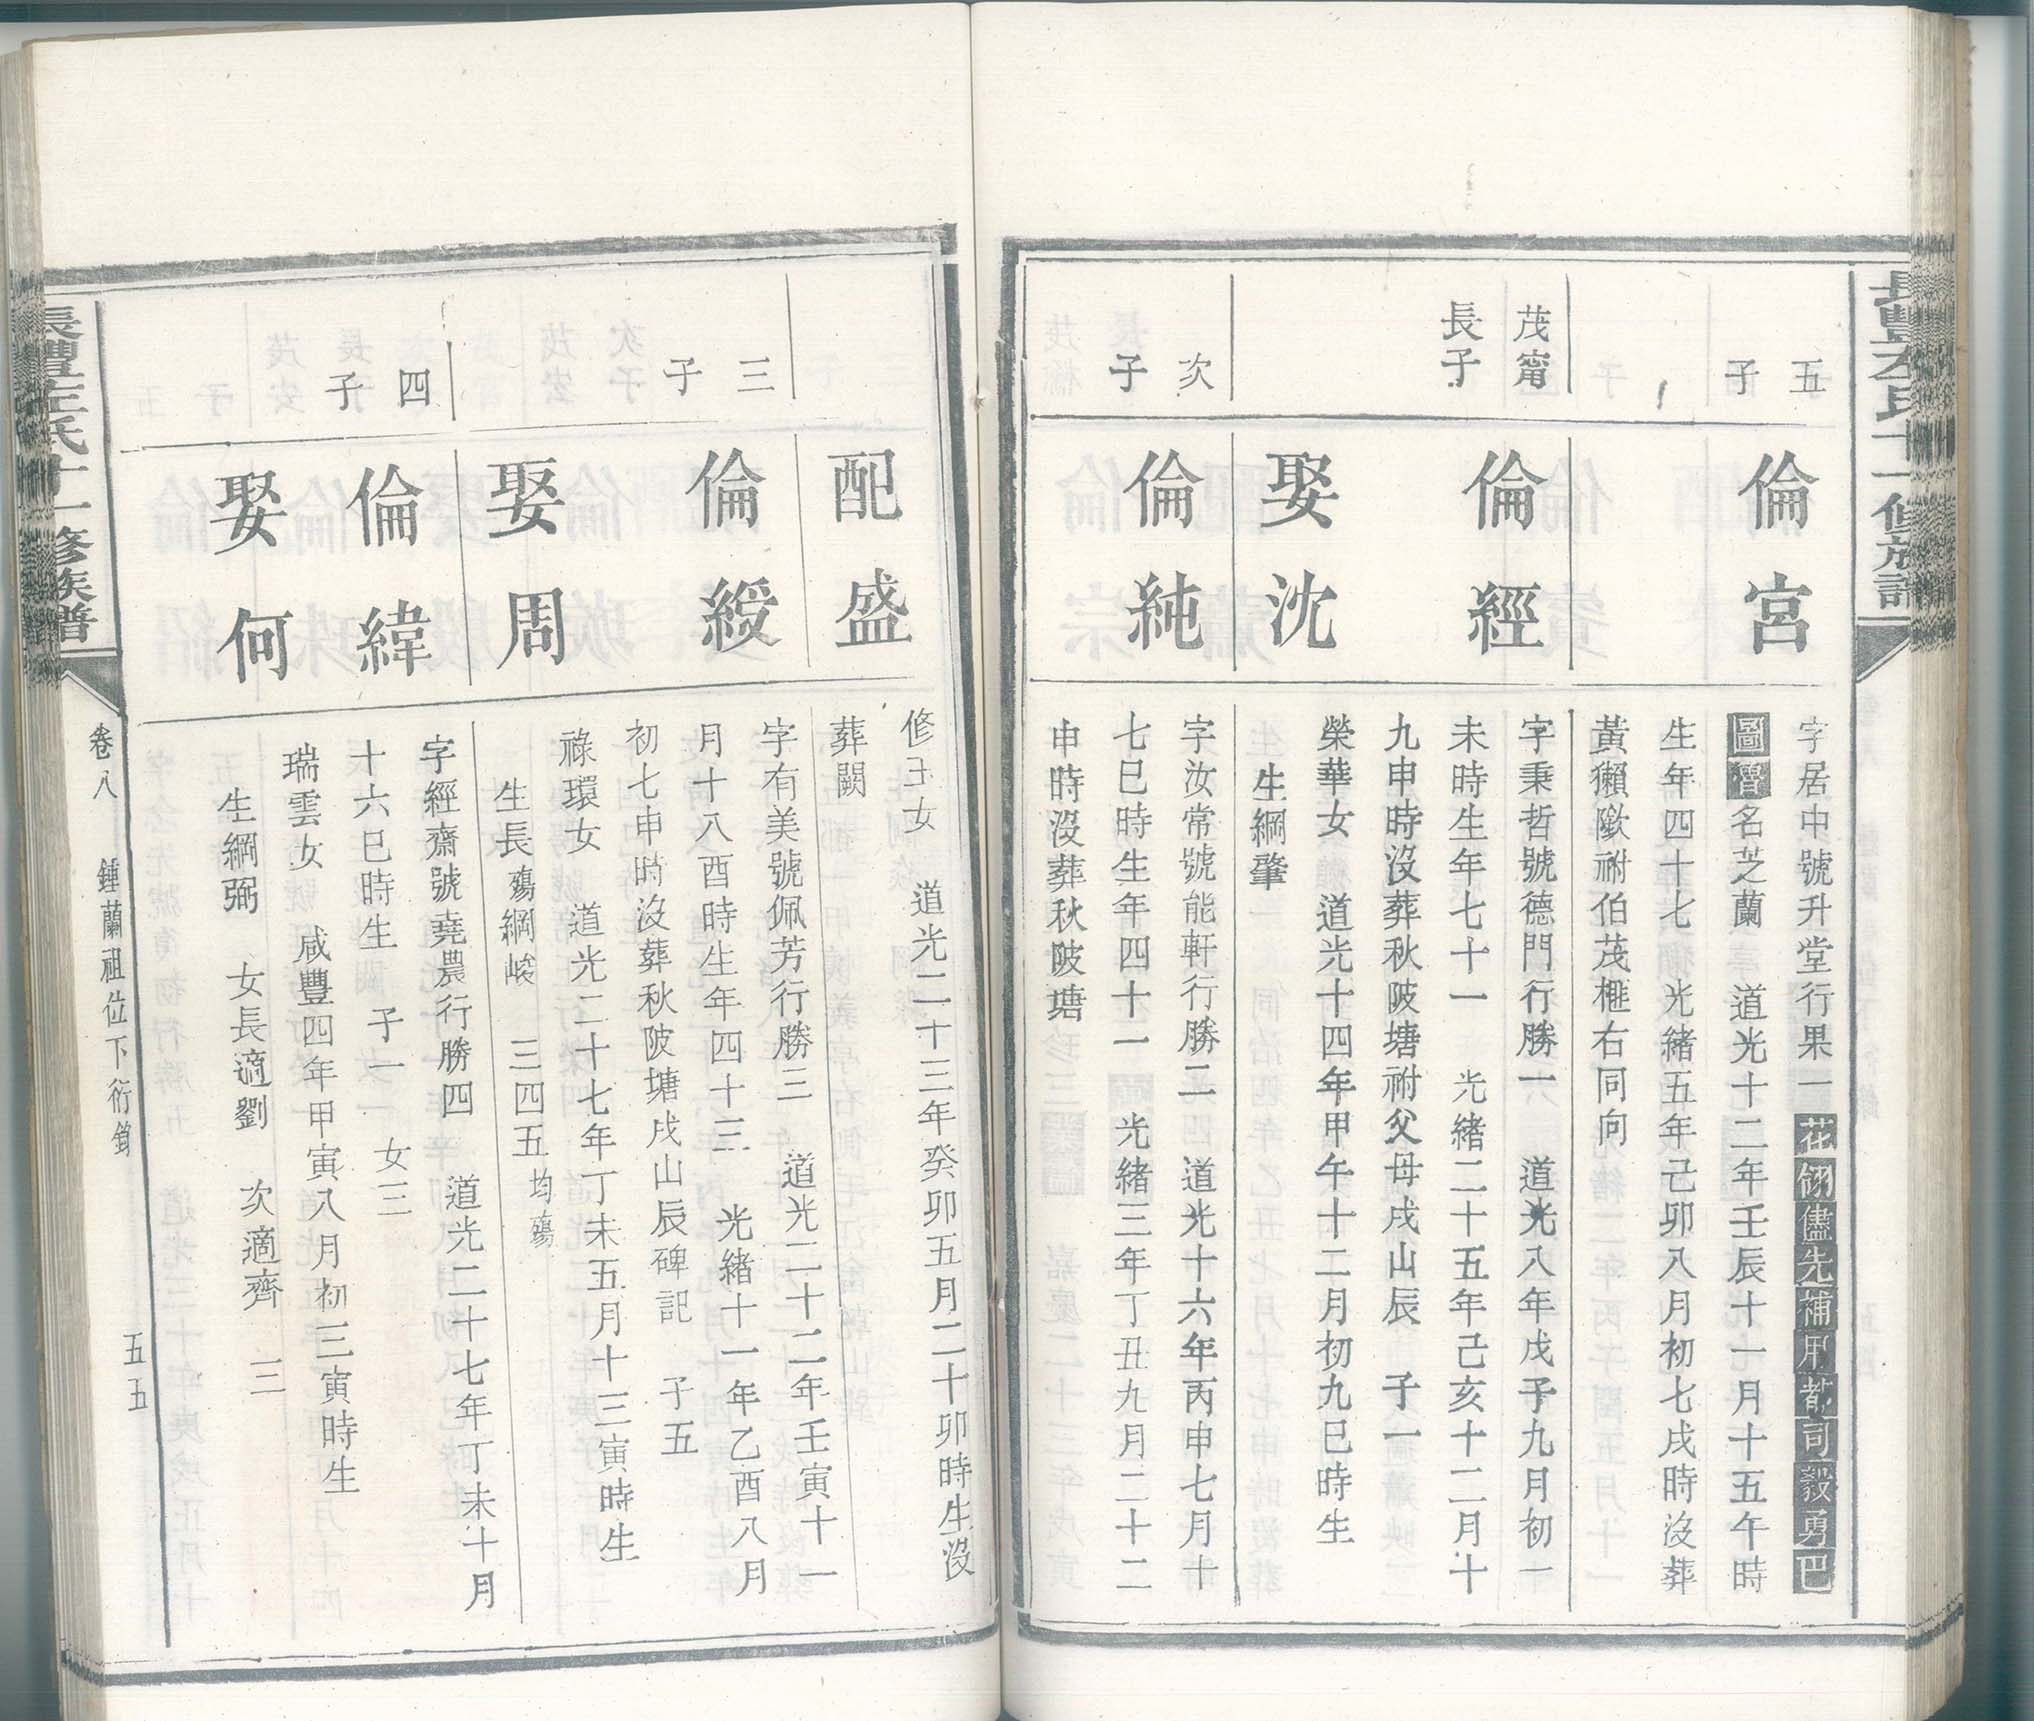 五子
倫宮
字居中號升堂行果一花翎儘先補用都司毅勇巴
圖魯名芝蘭　道光十二年壬辰十一月十五午時
生年四十七　光緒五年己卯八月初七戌時沒葬
黃獺墩祔伯茂榧右同向
茂甯
長子
倫經
字秉哲號德門行勝一　道光八年戊子九月初一
未時生年七十一　光緒二十五年己亥十二月十
九申時沒葬秋陂塘祔父母戌山辰　子一
娶沈
榮華女　道光十四年甲午十二月初九巳時生
生綱肇
次子
倫純
字汝常號能軒行勝二　道光十六年丙申七月十
七巳時生年四十一　光緒三年丁丑九月二十二
申時沒葬秋陂塘
配盛
修玉女　道光二十三年癸卯五月二十卯時生沒
葬闕
三子
倫綬
字有美號佩芳行勝三　道光二十二年壬寅十一
月十八酉時生年四十三　光緒十一年乙酉八月
初七申時沒葬秋陂塘戌山辰碑記　子五
娶周
祿環女　道光二十七年丁未五月十三寅時生
生長殤綱峻　三四五均殤
四子
倫緯
字經齋號堯農行勝四　道光二十七年丁未十月
十六巳時生　子一　女三
娶何
瑞雲女　咸豐四年甲寅八月初三寅時生
生綱弼　女長適劉　次適齊　三
長豐左氏十一修族譜
卷八　鍾蘭祖位下衍鈞　五五